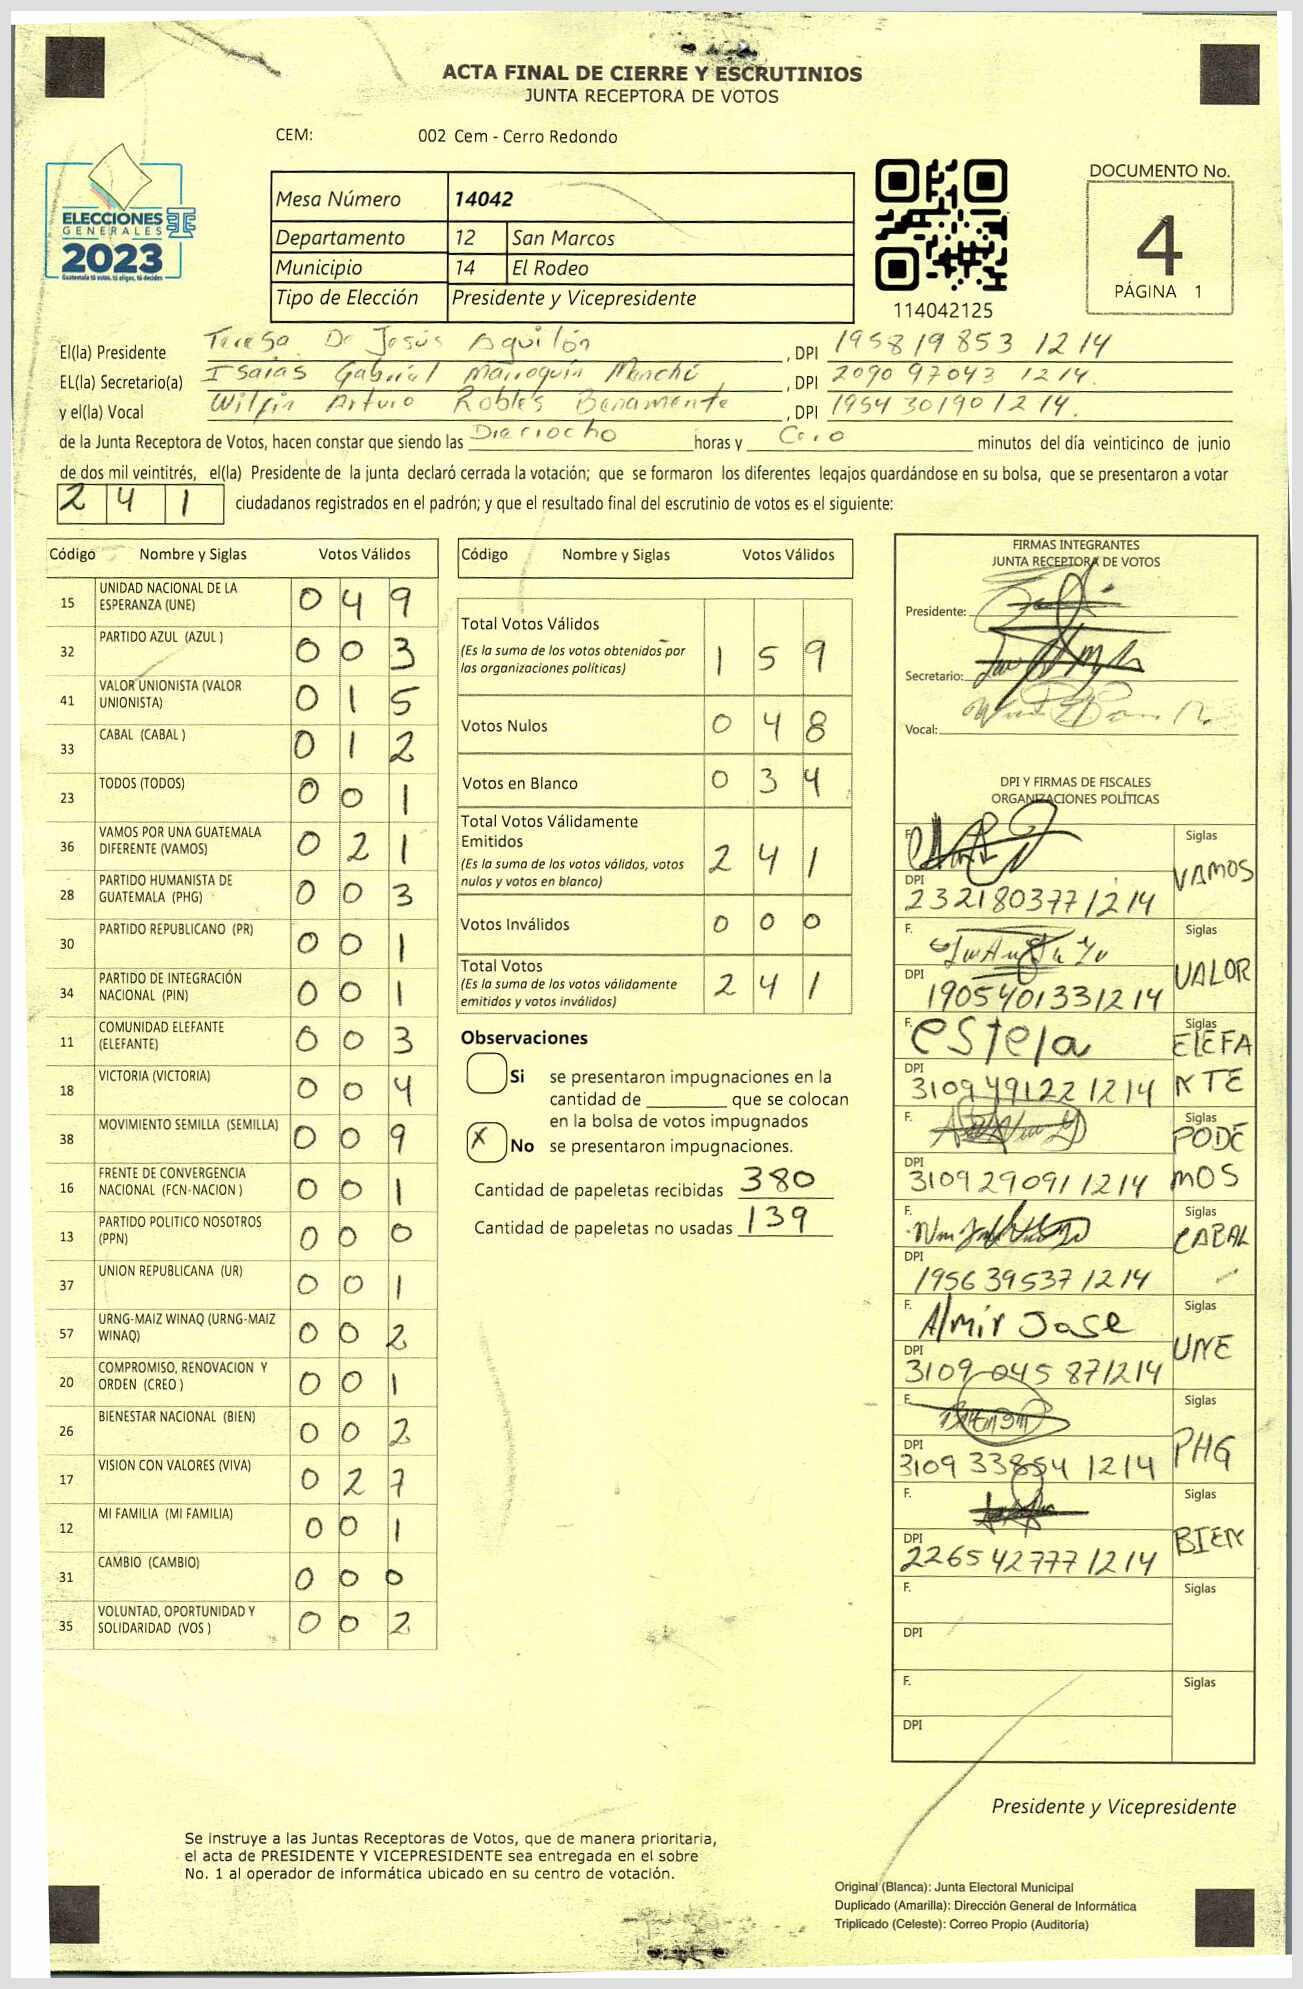 ACTA FINAL DE CIERRE Y ESCRUTINIOS
JUNTA RECEPTORA DE VOTOS
CEM: 002 Cem - Cerro Redondo
ELECCIONES
GENERALES
2023
Guatemala tú votas, tú eliges, tú decides
Mesa Número 14042
Departamento 12 San Marcos
Municipio 14 El Rodeo
Tipo de Elección Presidente y Vicepresidente
114042125
DOCUMENTO No.
4
PÁGINA 1
El(la) Presidente Teresa De Jesús Aguilón , DPI 195819853 1214
EL(la) Secretario(a) Isaias Gabriel Marroquin Menchú , DPI 2090 97043 1214.
y el(la) Vocal Arturo Robles , DPI 1954 30190 1214.
de la Junta Receptora de Votos, hacen constar que siendo las Dieciocho horas y Cero minutos del día veinticinco de junio
de dos mil veintitrés, el(la) Presidente de la junta declaró cerrada la votación; que se formaron los diferentes legajos quardándose en su bolsa, que se presentaron a votar
241 ciudadanos registrados en el padrón; y que el resultado final del escrutinio de votos es el siguiente:
Código Nombre y Siglas Votos Válidos
15 UNIDAD NACIONAL DE LA ESPERANZA (UNE) 049
32 PARTIDO AZUL (AZUL ) 003
41 VALOR UNIONISTA (VALOR UNIONISTA) 015
33 CABAL (CABAL ) 012
23 TODOS (TODOS) 001
36 VAMOS POR UNA GUATEMALA DIFERENTE (VAMOS) 021
28 PARTIDO HUMANISTA DE GUATEMALA (PHG) 003
30 PARTIDO REPUBLICANO (PR) 001
34 PARTIDO DE INTEGRACIÓN NACIONAL (PIN) 001
11 COMUNIDAD ELEFANTE (ELEFANTE) 003
18 VICTORIA (VICTORIA) 004
38 MOVIMIENTO SEMILLA (SEMILLA) 009
16 FRENTE DE CONVERGENCIA NACIONAL (FCN-NACION ) 001
13 PARTIDO POLITICO NOSOTROS (PPN) 000
37 UNION REPUBLICANA (UR) 001
57 URNG-MAIZ WINAQ (URNG-MAIZ WINAQ) 002
20 COMPROMISO, RENOVACION Y ORDEN (CREO ) 001
26 BIENESTAR NACIONAL (BIEN) 002
17 VISION CON VALORES (VIVA) 027
12 MI FAMILIA (MI FAMILIA) 001
31 CAMBIO (CAMBIO) 000
35 VOLUNTAD, OPORTUNIDAD Y SOLIDARIDAD (VOS ) 002
Código Nombre y Siglas Votos Válidos
Total Votos Válidos
(Es la suma de los votos obtenidos por
las organizaciones políticas) 159
Votos Nulos 048
Votos en Blanco 034
Total Votos Válidamente
Emitidos
(Es la suma de los votos válidos, votos
nulos y votos en blanco) 241
Votos Inválidos 000
Total Votos
(Es la suma de los votos válidamente
emitidos y votos inválidos) 241
Observaciones
Si se presentaron impugnaciones en la
cantidad de ________ que se colocan
en la bolsa de votos impugnados
X No se presentaron impugnaciones.
Cantidad de papeletas recibidas 380
Cantidad de papeletas no usadas 139
FIRMAS INTEGRANTES
JUNTA RECEPTORA DE VOTOS
Presidente:
Secretario:
Vocal:
DPI Y FIRMAS DE FISCALES
ORGANIZACIONES POLÍTICAS
F. Siglas VAMOS
DPI 232180377 1214
F. Siglas VALOR
DPI 190540133 1214
F. estela Siglas ELEFANTE
DPI 3109 49122 1214
F. Siglas PODEMOS
DPI 3109 29091 1214
F. Siglas CABAL
DPI 1956 39537 1214
F. Almir Jose Siglas UNE
DPI 3109 045 87 1214
F. Siglas PHG
DPI 3109 33854 1214
F. Siglas BIEN
DPI 2265 42777 1214
F. Siglas
DPI
F. Siglas
DPI
Presidente y Vicepresidente
Se instruye a las Juntas Receptoras de Votos, que de manera prioritaria,
el acta de PRESIDENTE Y VICEPRESIDENTE sea entregada en el sobre
No. 1 al operador de informática ubicado en su centro de votación.
Original (Blanca): Junta Electoral Municipal
Duplicado (Amarilla): Dirección General de Informática
Triplicado (Celeste): Correo Propio (Auditoría)